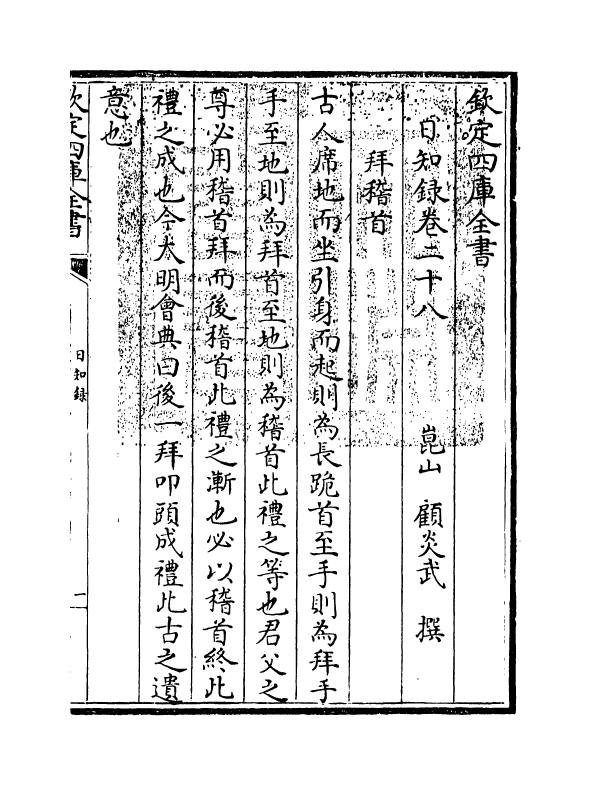 欽定四庫全書
日知錄卷二十八
崑山 顧炎武 撰
拜稽首
古人席地而坐引身而起則為長跪首至手則為拜手
手至地則為拜首至地則為稽首此禮之等也君父之
尊必用稽首拜而後稽首此禮之漸也必以稽首終此
禮之成也今大明會典曰後一拜叩頭成禮此古之遺
意也
欽定四庫全書
日知錄